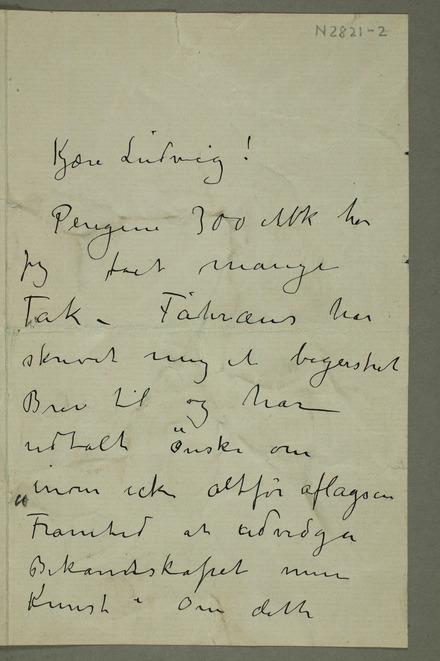 N2821-2
Kjære Ludvig!
Pengene 300 Mk har
jeg faaet mange
Tak – Fåhræus har
skrevet mig et begerstret
Brev til og har
udtalt önske om
„inom icke altför aflägsen
Framtid at udvidga
Bekandtskapet min
Kunst" Om dette